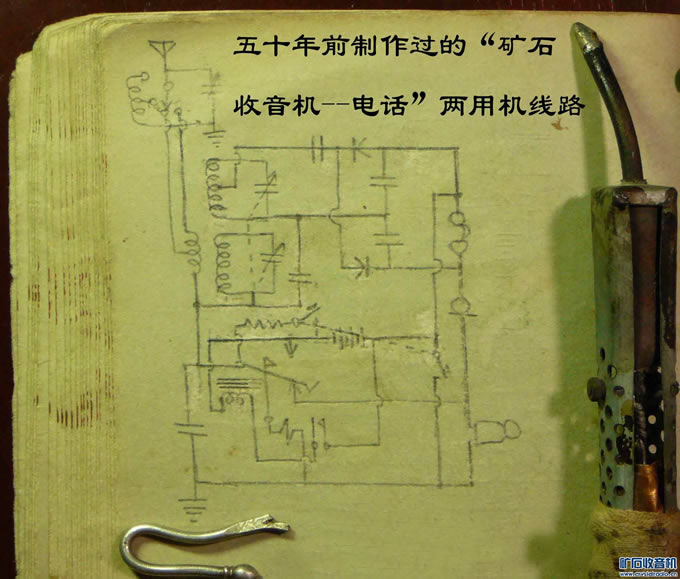 五十年前制作过的“矿石
收音机--电话”两用机线路
矿石收音机
www.crystalradio.cn